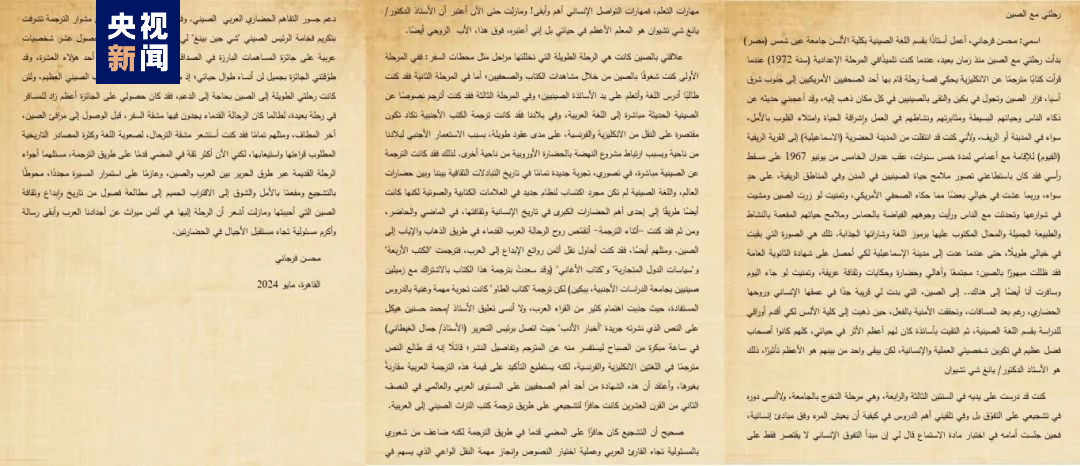 央视
新闻
رحلتي مع الصين
اسمي: محسن فرجاني، أعمل أستاذًا بقسم اللغة الصينية بكلية الألسن جامعة عين شمس (مصر)
بدأت رحلتي مع الصين منذ زمان بعيد، عندما كنت تلميذًا في المرحلة الإعدادية (سنة 1972) عندما
قرأت كتابًا مترجمًا عن الانكليزية يحكي قصة رحلة قام بها أحد الصحفيين الأمريكيين إلى جنوب شرق
آسيا، فزار الصين وتجول في بكين والتقى بالصينيين في كل مكان ذهب إليه، وقد أعجبني حديثه عن
ذكاء الناس وحياتهم البسيطة ومثابرتهم ونشاطهم في العمل وإشراقة الحياة وامتلاء القلوب بالأمل،
سواء في المدينة أو الريف، ولأني كنت قد انتقلت من المدينة الحضرية (الاسماعيلية) إلى القرية الريفية
(الفيوم) للإقامة مع أعمامي لمدة خمس سنوات، عقب عدوان الخامس من يونيو 1967 على مسقط
رأسي فقد كان باستطاعتي تصور ملامح حياة الصينيين في المدن وفي المناطق الريفية، على حدٍ
سواء، وربما عشت في خيالي بعضًا مما حكاه الصحفي الأمريكي، وتمنيت لو زرت الصين ومشيت
في شوارعها وتحدثت مع الناس ورأيت وجوههم الفياضة بالحماس وملامح حياتهم المفعمة بالنشاط
والطبيعة الجميلة والمحال المكتوب عليها برموز اللغة وشاراتها الجذابة. تلك هي الصورة التي بقيت
في خيالي طويلًا، حتى عندما عدت إلى مدينة الإسماعيلية لكي أحصل على شهادة الثانوية العامة
فقد ظللت مبهورًا بالصين: مجتمعًا وأهالي وحضارة وحكايات وثقافة عريقة، وتمنيت لو جاء اليوم
وسافرت أنا أيضًا إلى هناك.. إلى الصين، التي بدت لي قريبة جدًا في عمقها الإنساني وروحها
الحضاري، رغم بعد المسافات، وتحققت الأمنية بالفعل، حين ذهبت إلى كلية الألسن لكي أقدم أوراقي
للدراسة بقسم اللغة الصينية، ثم التقيت بأساتذة كان لهم أعظم الأثر في حياتي، كلهم كانوا أصحاب
فضل عظيم في تكوين شخصيتي العملية والإنسانية، لكن يبقى واحد من بينهم هو الأعظم تأثيرًا، ذلك
هو الأستاذ الدكتور/ يانغ شي تشيوان
كنت قد درست على يديه في السنتين الثالثة والرابعة، وهي مرحلة التخرج بالجامعة، ولاأنسى دوره
في تشجيعي على التفوق بل وفي تلقيني أهم الدروس في كيفية أن يعيش المرء وفق مبادئ إنسانية،
فحين جلست أمامه في اختبار مادة الاستماع قال لي إن مبدأ التفوق الإنساني لا يقتصر فقط على
مهارات التعلم، فمهارات التواصل الإنساني أهم وأبقى! ومازلت حتى الآن أعتبر أن الأستاذ الدكتور/
يانغ شي تشيوان هو المعلم الأعظم في حياتي بل إني أعتبره، فوق هذا، الأب الروحي أيضًا.
علاقتي بالصين كانت هي الرحلة الطويلة التي تخللتها مراحل مثل محطات السفر: ففي المرحلة
الأولى كنت شغوفًا بالصين من خلال مشاهدات الكتاب والصحفيين؛ أما في المرحلة الثانية فقد كنت
طالبًا أدرس اللغة وأتعلم على يد الأساتذة الصينيين؛ وفي المرحلة الثالثة فقد كنت أترجم نصوصًا عن
الصينية الحديثة مباشرة إلى اللغة العربية، وبالنسبة لبلادنا فقد كانت ترجمة الكتب الأجنبية تكاد تكون
مقتصرة على النقل من الانكليزية والفرنسية، على مدى عقود طويلة، بسبب الاستعمار الأجنبي لبلادنا
من ناحية وبسبب ارتباط مشروع النهضة بالحضارة الأوروبية من ناحية أخرى. لذلك فقد كانت الترجمة
عن الصينية مباشرة، في تصوري، تجربة جديدة تمامًا في تاريخ التبادلات الثقافية بيننا وبين حضارات
العالم، واللغة الصينية لم تكن مجرد اكتساب لنظام جديد في العلامات الكتابية والصوتية لكنها كانت
أيضًا طريقًا إلى إحدى أهم الحضارات الكبرى في تاريخ الإنسانية وثقافتها، في الماضي والحاضر،
ومن ثم فقد كنت –أثناء الترجمة- أتقمّص روح الرحالة العرب القدماء في طريق الذهاب والإياب إلى
الصين. ومثلهم أيضًا، فقد كنت أحاول نقل أثمن روائع الإبداع إلى العرب، فترجمت "الكتب الأربعة"
و"سياسات الدول المتحاربة" و"كتاب الأغاني" (وقد سعدت بترجمة هذا الكتاب بالاشتراك مع زميلين
صينيين بجامعة الدراسات الأجنبية، ببكين) لكن ترجمة "كتاب الطاو" كانت تجربة مهمة وغنية بالدروس
المستفادة، حيث جذبت اهتمام كثير من القراء العرب، ولا أنسى تعليق الأستاذ /محمد حسنين هيكل
على النص الذي نشرته جريدة "أخبار الأدب" حيث اتصل برئيس التحرير (الأستاذ/ جمال الغيطاني)
في ساعة مبكرة من الصباح ليستفسر منه عن المترجم وتفاصيل النشر؛ قائلًا إنه قد طالع النص
مترجمًا في اللغتين الانكليزية والفرنسية، لكنه يستطيع التأكيد على قيمة هذه الترجمة العربية مقارنة
بغيرها، وأعتقد أن هذه الشهادة من أحد أهم الصحفيين على المستوى العربي والعالمي في النصف
الثاني من القرن العشرين كانت حافزًا لتشجيعي على طريق ترجمة كتب التراث الصيني إلى العربية.
صحيح أن التشجيع كان حافزًا على المضي قدما في طريق الترجمة لكنه ضاعف من شعوري
بالمسئولية تجاه القارئ العربي وعملية اختيار النصوص وانجاز مهمة النقل الواعي الذي يسهم في
دعم جسور التفاهم الحضاري العربي الصيني. وفي مشوار الترجمة تشرفت
بتكريم فخامة الرئيس الصيني "شي جين بينغ" لي حصول عشر شخصيات
عربية على جائزة المساهمات البارزة في الصداقة أحد هؤلاء العشرة، وقد
طوّقتني الجائزة بجميل لن أنساه طوال حياتي؛ إذ الشعب الصيني العظيم، ولئن
كانت رحلتي الطويلة إلى الصين بحاجة إلى الدعم، فقد كان حصولي على الجائزة أعظم زاد للمسافر
في رحلة بعيدة، لطالما كان الرحالة القدماء يجدون فيها مشقة السفر، قبل الوصول إلى مرافئ الصين،
آخر المطاف، ومثلهم تمامًا فقد كنت أستشعر مشقة الترحال، لصعوبة اللغة وكثرة المصادر التاريخية
المطلوب قراءتها واستيعابها، لكني الآن أكثر ثقة في المضي قدمًا على طريق الترجمة، مستلهما أجواء
الرحلة القديمة عبر طريق الحرير بين العرب والصين، وعازمًا على استمرار المسيرة مجددًا، محوطًا
بالتشجيع ومفعمًا بالأمل والشوق إلى الاقتراب الحميم إلى مطالعة فصول من تاريخ وإبداع وثقافة
الصين التي أحببتها ومازلت أشعر أن الرحلة إليها هي أثمن ميراث عن أجدادنا العرب وأبقى رسالة
وأكرم مسئولية تجاه مستقبل الأجيال في الحضارتين.
محسن فرجاني
القاهرة، مايو 2024